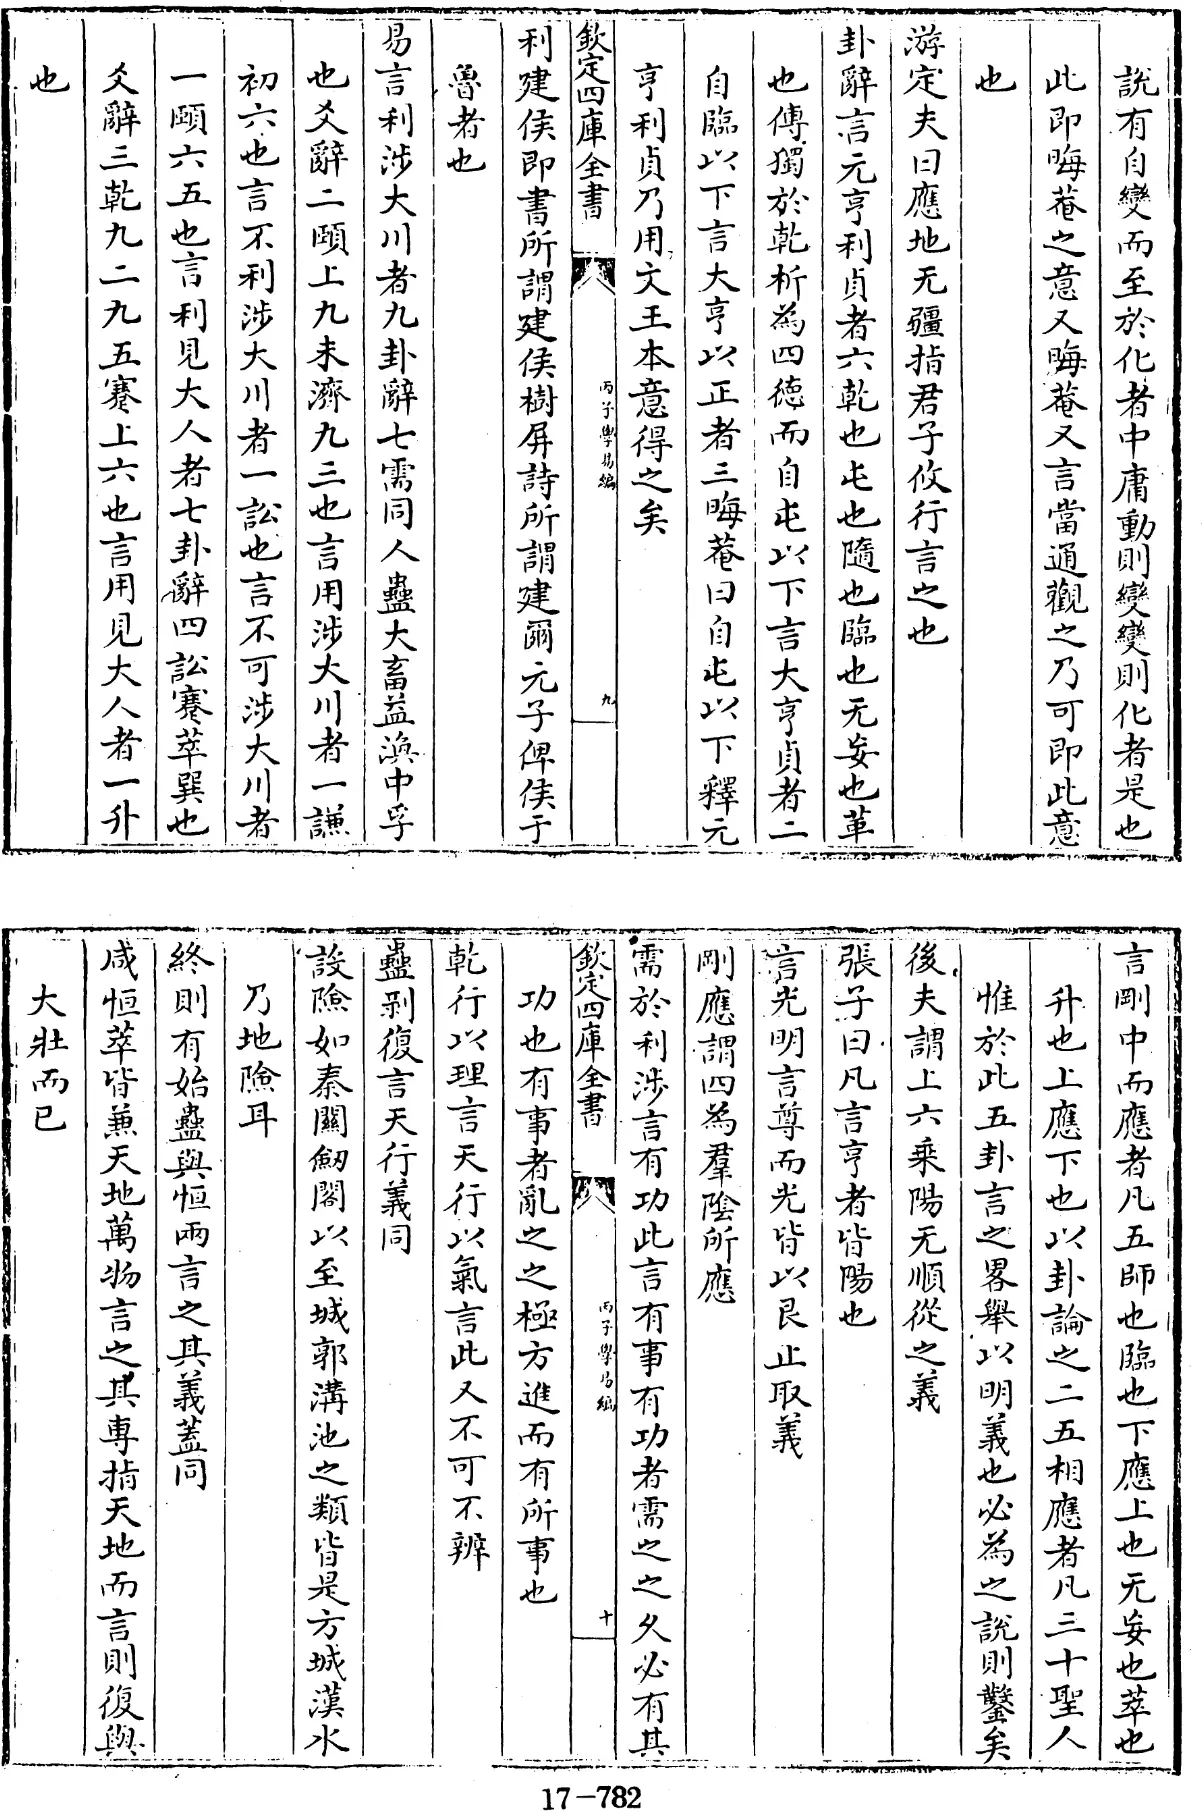 說有自變而至於化者中庸動則變變則化者是也
此即晦菴之意又晦菴又言當通觀之乃可即此意
也
游定夫曰應地无疆指君子攸行言之也
卦辭言元亨利貞者六乾也屯也隨也臨也无妄也革
也傳獨於乾析為四德而自屯以下言大亨貞者二
自臨以下言大亨以正者三晦菴曰自屯以下釋元
亨利貞乃用文王本意得之矣
欽定四庫全書
丙子學易編
九
利建侯即書所謂建侯樹屏詩所謂建爾元子俾侯于
魯者也
易言利涉大川者九卦辭七需同人蠱大畜益渙中孚
也爻辭二頤上九未濟九三也言用涉大川者一謙
初六也言不利涉大川者一訟也言不可涉大川者
一頤六五也言利見大人者七卦辭四訟蹇萃巽也
爻辭三乾九二九五蹇上六也言用見大人者一升
也
言剛中而應者凡五師也臨也下應上也无妄也萃也
升也上應下也以卦論之二五相應者凡三十聖人
惟於此五卦言之畧舉以明義也必為之說則鑿矣
後夫謂上六乘陽无順從之義
張子曰凡言亨者皆陽也
言光明言尊而光皆以艮止取義
剛應謂四為羣陰所應
需於利涉言有功此言有事有功者需之之久必有其
欽定四庫全書
丙子學易編
十
功也有事者亂之之極方進而有所事也
乾行以理言天行以氣言此又不可不辨
蠱剝復言天行義同
設險如秦關劒閣以至城郭溝池之類皆是方城漢水
乃地險耳
終則有始蠱與恒兩言之其義蓋同
咸恒萃皆兼天地萬物言之其專指天地而言則復與
大壯而已
17-782